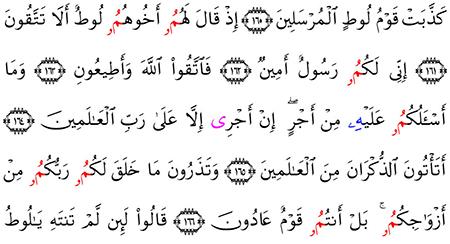 كَذَّبَتْ قَوْمُ لُوطٍ ٱلْمُرْسَلِينَ ﴿١٦٠﴾ إِذْ قَالَ لَهُمُۥ أَخُوهُمُۥ لُوطٌ أَلَا تَتَّقُونَ
﴿١٦١﴾ إِنِّى لَكُمُۥ رَسُولٌ أَمِينٌ ﴿١٦٢﴾ فَٱتَّقُوا۟ ٱللَّهَ وَأَطِيعُونِ ﴿١٦٣﴾ وَمَا
أَسْـَٔلُكُمُۥ عَلَيْهِۦ مِنْ أَجْرٍ ۖ إِنْ أَجْرِى إِلَّا عَلَىٰ رَبِّ ٱلْعَٰلَمِينَ ﴿١٦٤﴾
أَتَأْتُونَ ٱلذُّكْرَانَ مِنَ ٱلْعَٰلَمِينَ ﴿١٦٥﴾ وَتَذَرُونَ مَا خَلَقَ لَكُمُۥ رَبُّكُمُۥ مِنْ
أَزْوَٰجِكُمُۥ ۚ بَلْ أَنتُمُۥ قَوْمٌ عَادُونَ ﴿١٦٦﴾ قَالُوا۟ لَئِن لَّمْ تَنتَهِ يَٰلُوطُ